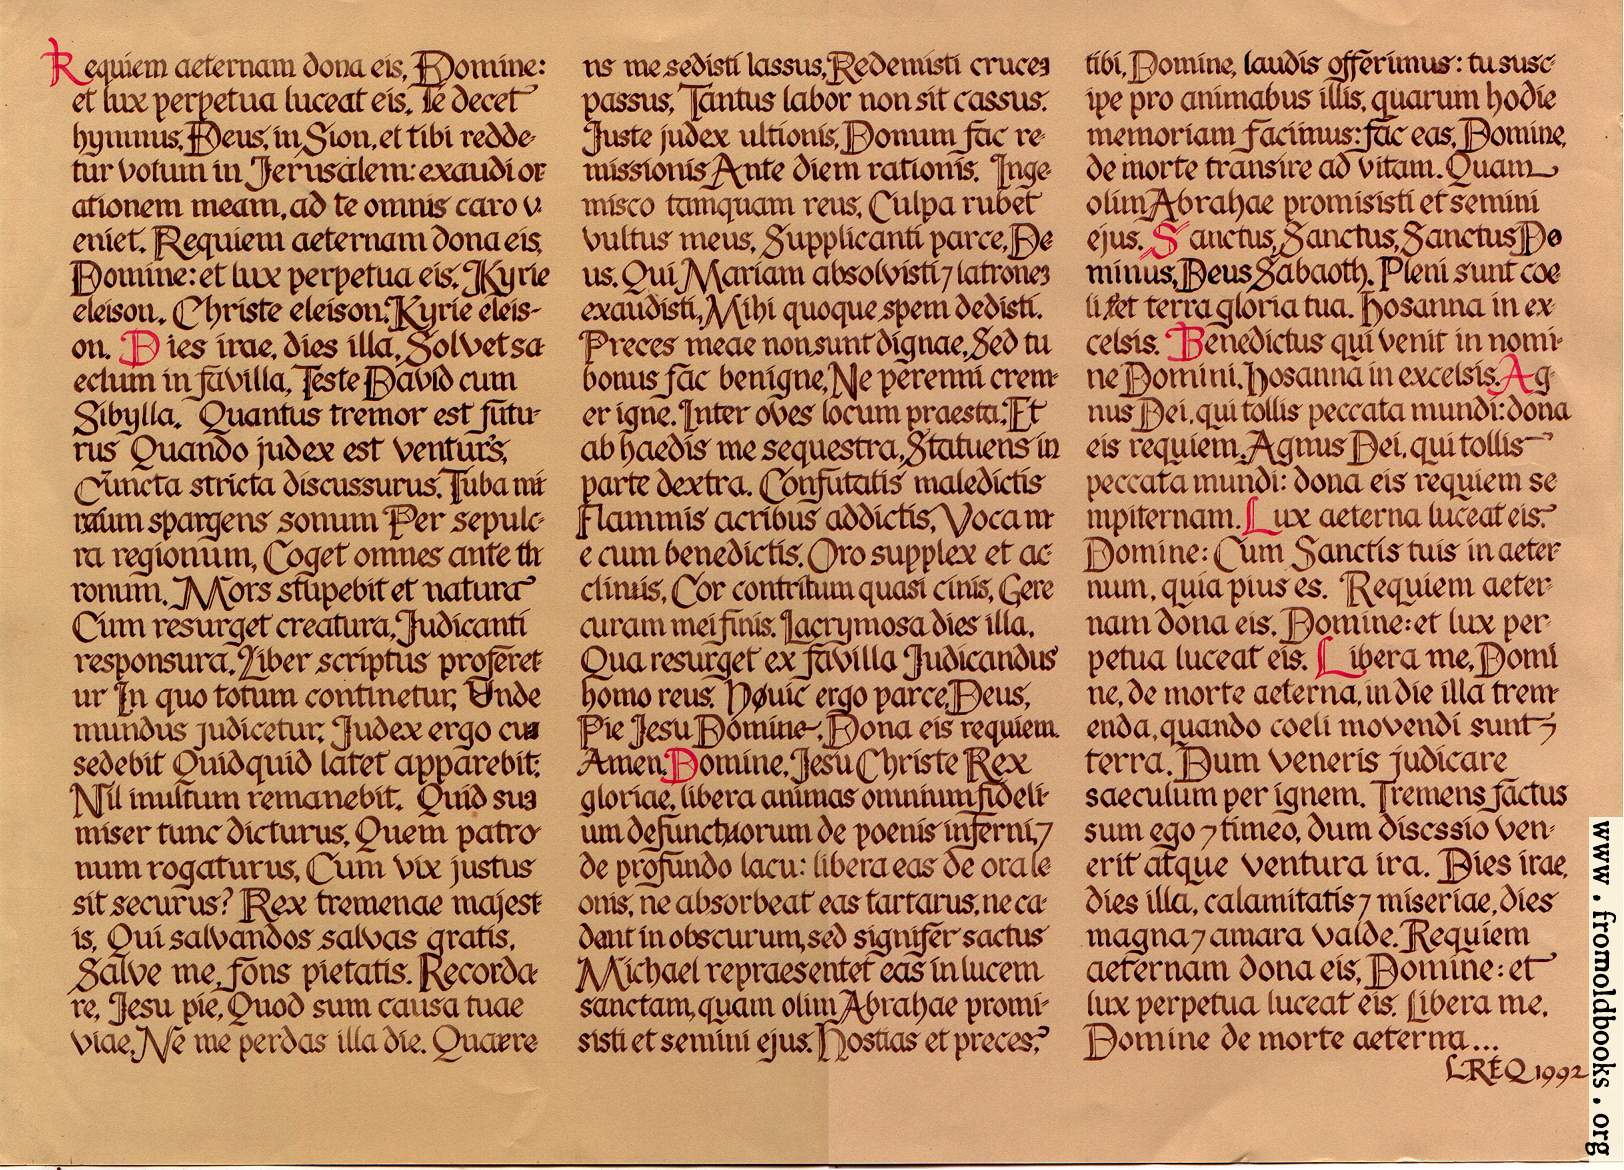 Requiem aeternam dona eis, Domine:
et lux perpetua luceat eis. Te decet
hymnus, Deus, in Sion, et tibi redde-
tur votum in Jerusalem: exaudi or-
ationem meam, ad te omnis caro v-
eniet. Requiem aeternam dona eis,
Domine: et lux perpetua eis. Kyrie
eleison. Christe eleison. Kyrie eleis-
on. Dies irae, dies illa, Solvet sa
eclum in favilla, Teste David cum
Sibylla. Quantus tremor est futu-
rus Quando judex est venturs,
Cuncta stricta discussurus. Tuba mi
rum spargens sonum Per sepulc-
ra regionum, Coget omnes ante th
ronum. Mors stupebit et natura
Cum resurget creatura, Judicanti
responsura. Liber scriptus proferet-
ur In quo totum continetur, Unde
mundus judicetur. Judex ergo cum
sedebit Quidquid latet apparebit:
Nil inultum remanebit. Quid sum
miser tunc dicturus, Quem patro-
num rogaturus, Cum vix justus
sit securus? Rex tremenae majest-
is, Qui salvandos salvas gratis,
Salve me, fons pietatis. Recorda-
re, Jesu pie, Quod sum causa tuae
viae, Ne me perdas illa die. Quaere
ns me sedisti lassus, Redemisti crucem
passus, Tantus labor non sit cassus.
Juste judex ultionis, Donum fac re-
missionis Ante diem rationis. Inge-
misco tamquam reus, Culpa rubet
vultus meus, Supplicanti parce, De-
us. Qui Mariam absolvisti ⁊ latronem
exaudisti, Mihi quoque spem dedisti.
Preces meae non sunt dignae, Sed tu
bonus fac benigne, Ne perenni crem-
er igne. Inter oves locum praesta, Et
ab haedis me sequestra, Statuens in
parte dextra. Confutatis maledictis
Flammis acribus addictis, Voca m-
e cum benedictis. Oro supplex et ac-
clinis, Cor contritum quasi cinis, Gere
curam mei finis. Lacrymosa dies illa,
Qua resurget ex favilla Judicandus
homo reus. Huic ergo parce, Deus,
Pie Jesu Domine, Dona eis requiem.
Amen. Domine, Jesu Christe Rex
gloriae, libera animas omnium fideli-
um defunctuorum de poenis inferni, ⁊
de profundo lacu: libera eas de ora le
onis, ne absorbeat eas tartarus, ne ca-
dant in obscurum, sed signifer sactus
Michael repraesentet eas in lucem
sanctam, quam olim Abrahae promi-
sisti et semini ejus. Hostias et preces,
tibi, Domine, laudis offerimus: tu susc-
ipe pro animabus illis, quarum hodie
memoriam facimus: fac eas, Domine,
de morte transire ad vitam. Quam
olim Abrahae promisisti et semini
ejus. Sanctus, Sanctus, Sanctus Do
minus, Deus Sabaoth. Pleni sunt coe
li et terra gloria tua. Hosanna in ex-
celsis. Benedictus qui venit in nomi-
ne Domini. Hosanna in excelsis. Ag-
nus Dei, qui tollis peccata mundi: dona
eis requiem. Agnus Dei, qui tollis
peccata mundi: dona eis requiem se
mpiternam. Lux aeterna luceat eis,
Domine: Cum Sanctis tuis in aeter-
num, quia pius es. Requiem aeter-
nam dona eis. Domine: et lux per-
petua luceat eis. Libera me, Domi
ne, de morte aeterna, in die illa trem-
enda, quando coeli movendi sunt ⁊
terra. Dum veneris judicare
saeculum per ignem. Tremens factus
sum ego ⁊ timeo, dum discssio ven-
erit atque ventura ira. Dies irae,
dies illa, calamitatis ⁊ miseriae, dies
magna ⁊ amara valde. Requiem
aeternam dona eis, Domine: et
lux perpetua luceat eis. Libera me,
Domine de morte aeterna...
LREQ 1992
www.fromoldbooks.org